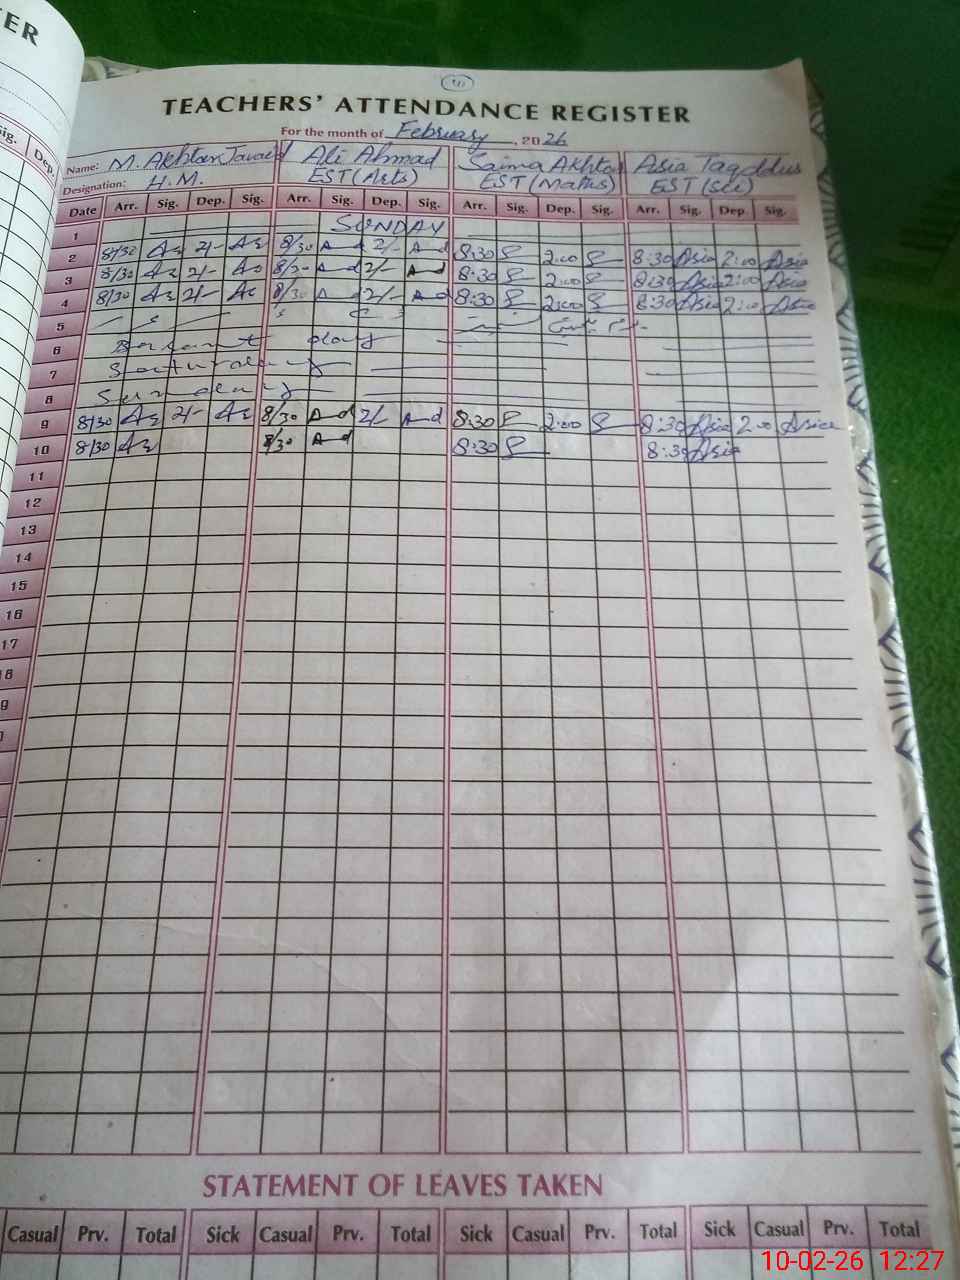 TER
Sig. Dep.
TEACHERS' ATTENDANCE REGISTER
For the month of February, 2026
Name: M. Akhtar Javaid Ali Ahmad Saima Akhtar Asia Taqddus
Designation: H.M. EST (Arts) EST (Maths) EST (Sci)
Date Arr. Sig. Dep. Sig. Arr. Sig. Dep. Sig. Arr. Sig. Dep. Sig. Arr. Sig. Dep. Sig.
1 SUNDAY
2 8/30 2/- 8/30 2/- 8:30 2:00 8:30 Asia 2:00 Asia
3 8/30 2/- 8/30 2/- 8:30 2:00 8:30 Asia 2:00 Asia
4 8/30 2/- 8/30 2/- 8:30 2:00 8:30 Asia 2:00 Asia
5
6 Basant day
7 Saturday
8 Sunday
9 8/30 2/- 8/30 2/- 8:30 2:00 8:30 Asia 2:00 Asia
10 8/30 8/30 8:30 8:30 Asia
11
12
13
14
15
16
17
18
9
STATEMENT OF LEAVES TAKEN
Casual Prv. Total Sick Casual Prv. Total Sick Casual Prv. Total Sick Casual Prv. Total
10-02-26 12:27